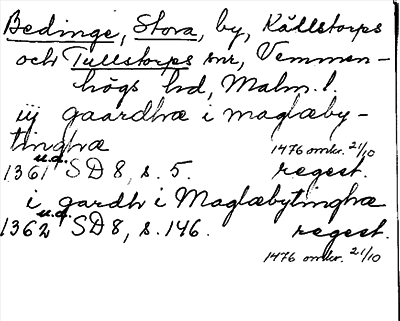 Bedinge, Stora, by, Källstorps
och Tullstorps snr, Vemmen-
högs hd, Malm. l.
iij gaardhæ i maglæby-
tinghæ
1476 omkr. 21/10
u.a.
1361 SD 8, s. 5. regest.
i gardh i Maglæbytinghæ
u.a.
1362 SD 8, s. 146. regest.
1476 omkr. 21/10